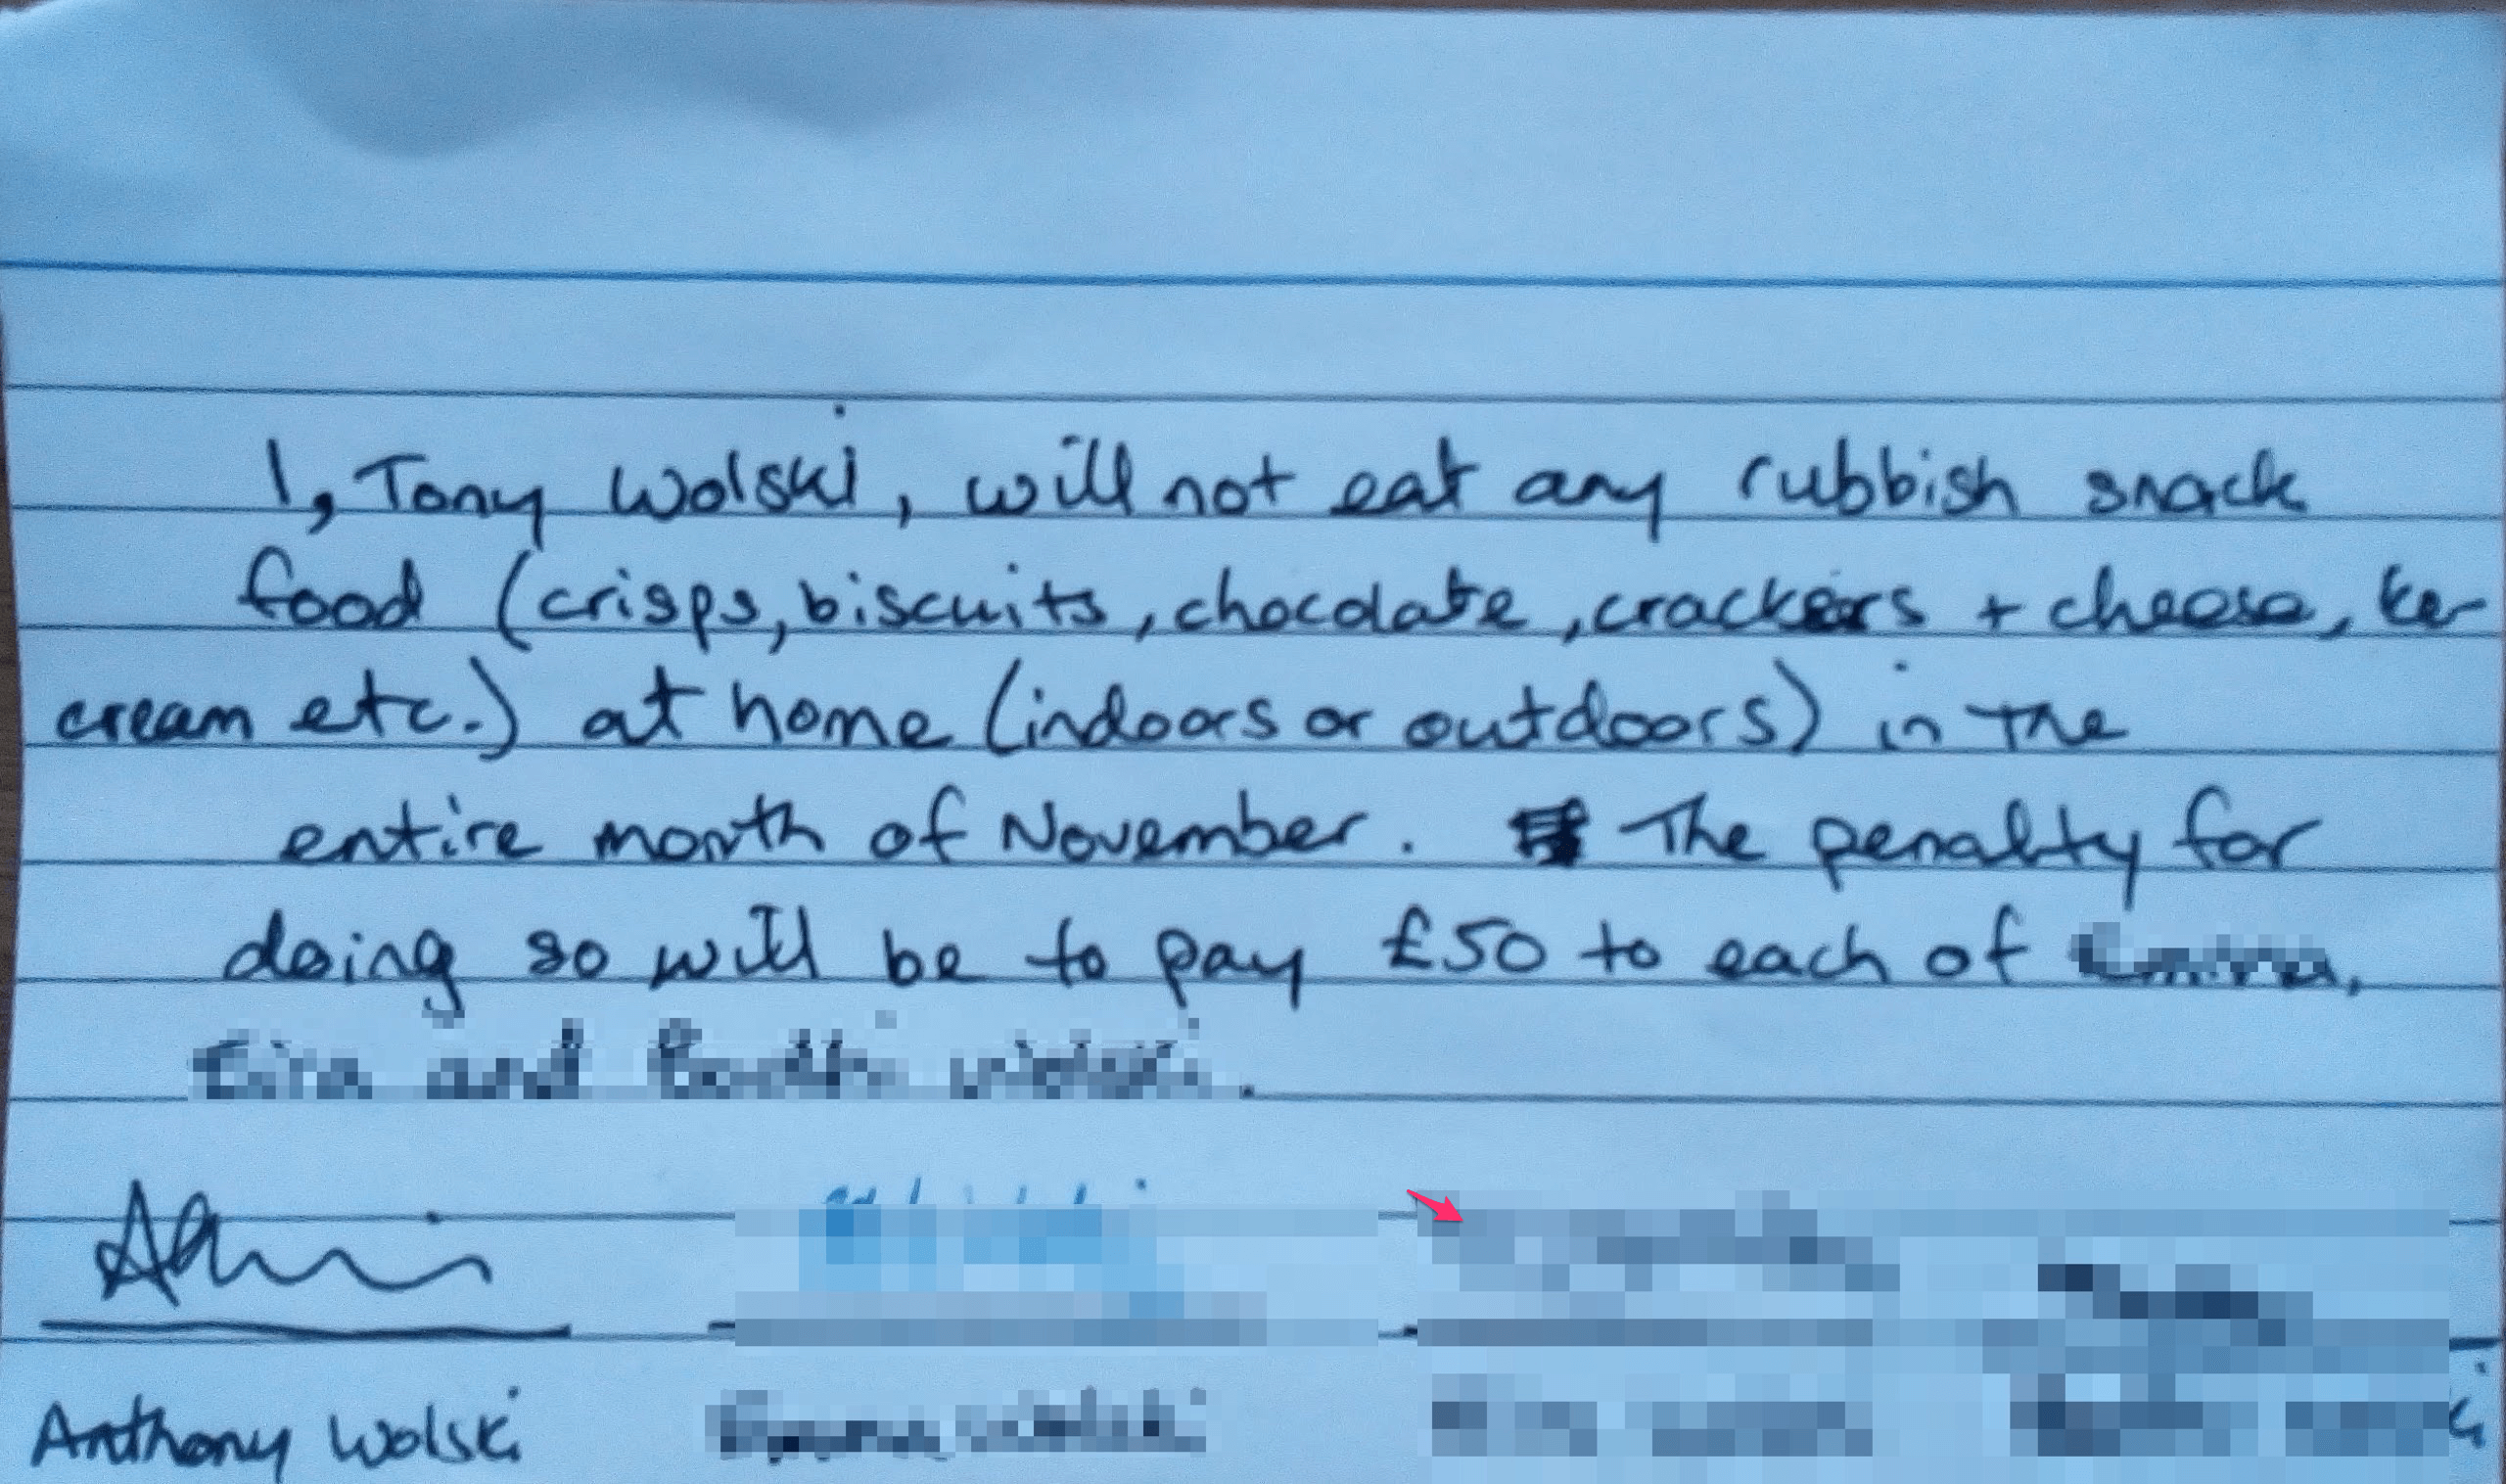 I, Tony Wolski, will not eat any rubbish snack
food (crisps, biscuits, chocolate, crackers + cheese, ice
cream etc.) at home (indoors or outdoors) in the
entire month of November. The penalty for
doing so will be to pay £50 to each of
Anthony Wolski